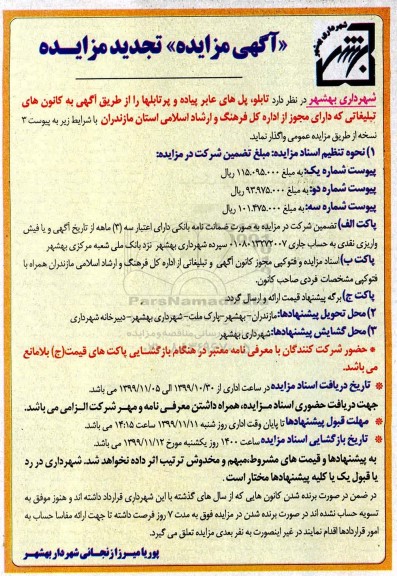 شهرداری بهشهر
بهشهر
«آگهی مزایده» تجدید مزایــده
شهرداری بهشهر در نظر دارد تابلو، پل های عابر پیاده و پرتابلها را از طریق آگهی به کانون های
تبلیغاتی که دارای مجوز از اداره کل فرهنگ و ارشاد اسلامی استان مازندران با شرایط زیر به پیوست ۳
نسخه از طریق مزایده عمومی واگذار نماید.
۱) نحوه تنظیم اسناد مزایده: مبلغ تضمین شرکت در مزایده:
پیوست شماره یک: به مبلغ ۱۱۵.۰۹۵.۰۰۰ ریال
پیوست شماره دو: به مبلغ ۹۳.۹۷۵.۰۰۰ ریال
پیوست شماره سه: به مبلغ ۱۰۱.۴۷۵.۰۰۰ ریال
پاکت الف) تضمین شرکت در مزایده به صورت ضمانت نامه بانکی دارای اعتبار سه (۳) ماهه از تاریخ آگهی و یا فیش
واریزی نقدی به حساب جاری ۰۱۰۸۰۱۳۲۷۲۰۰۷ سپرده شهرداری بهشهر نزد بانک ملی شعبه مرکزی بهشهر
پاکت ب) اسناد مزایده و فتوکپی مجوز کانون آگهی و تبلیغاتی از اداره کل فرهنگ و ارشاد اسلامی مازندران همراه با
فتوکپی مشخصات فردی صاحب کانون.
پاکت ج) برگه پیشنهاد قیمت ارائه و ارسال گردد.
۲) محل تحویل پیشنهادها: مازندران-بهشهر-پارک ملت-شهرداری بهشهر-دبیرخانه شهرداری
۳) محل گشایش پیشنهادها: شهرداری بهشهر
* حضور شرکت کنندگان با معرفی نامه معتبر در هنگام بازگشایی پاکت های قیمت(ج) بلامانع
می باشد.
* تاریخ دریافت اسناد مزایده در ساعت اداری از ۱۳۹۹/۱۰/۳۰ الی ۱۳۹۹/۱۱/۰۵ می باشد.
جهت دریافت حضوری اسناد مزایده، همراه داشتن معرفی نامه و مهر شرکت الزامی می باشد.
* مهلت قبول پیشنهادها تا پایان وقت اداری روز شنبه ۱۳۹۹/۱۱/۱۱ ساعت ۱۴:۱۵ می باشد.
* تاریخ بازگشایی اسناد مزایده ساعت ۱۴۰۰ روز یکشنبه مورخ ۱۳۹۹/۱۱/۱۲ می باشد.
به پیشنهادها و قیمت های مشروط،مبهم و مخدوش ترتیب اثر داده نخواهد شد. شهرداری در رد
یا قبول یک یا کلیه پیشنهادها مختار است.
در ضمن در صورت برنده شدن کانون هایی که از سال های گذشته با این شهرداری قرارداد داشته اند و هنوز موفق به
تسویه حساب نشده اند در صورت برنده شدن در مزایده فوق به مدت ۷ روز فرصت داشته تا جهت ارائه مفاسا حساب به
امور قراردادها اقدام نمایند در غیر اینصورت به نفر بعدی مزایده تعلق می گیرد.
پوریا میرزازنجانی شهردار بهشهر